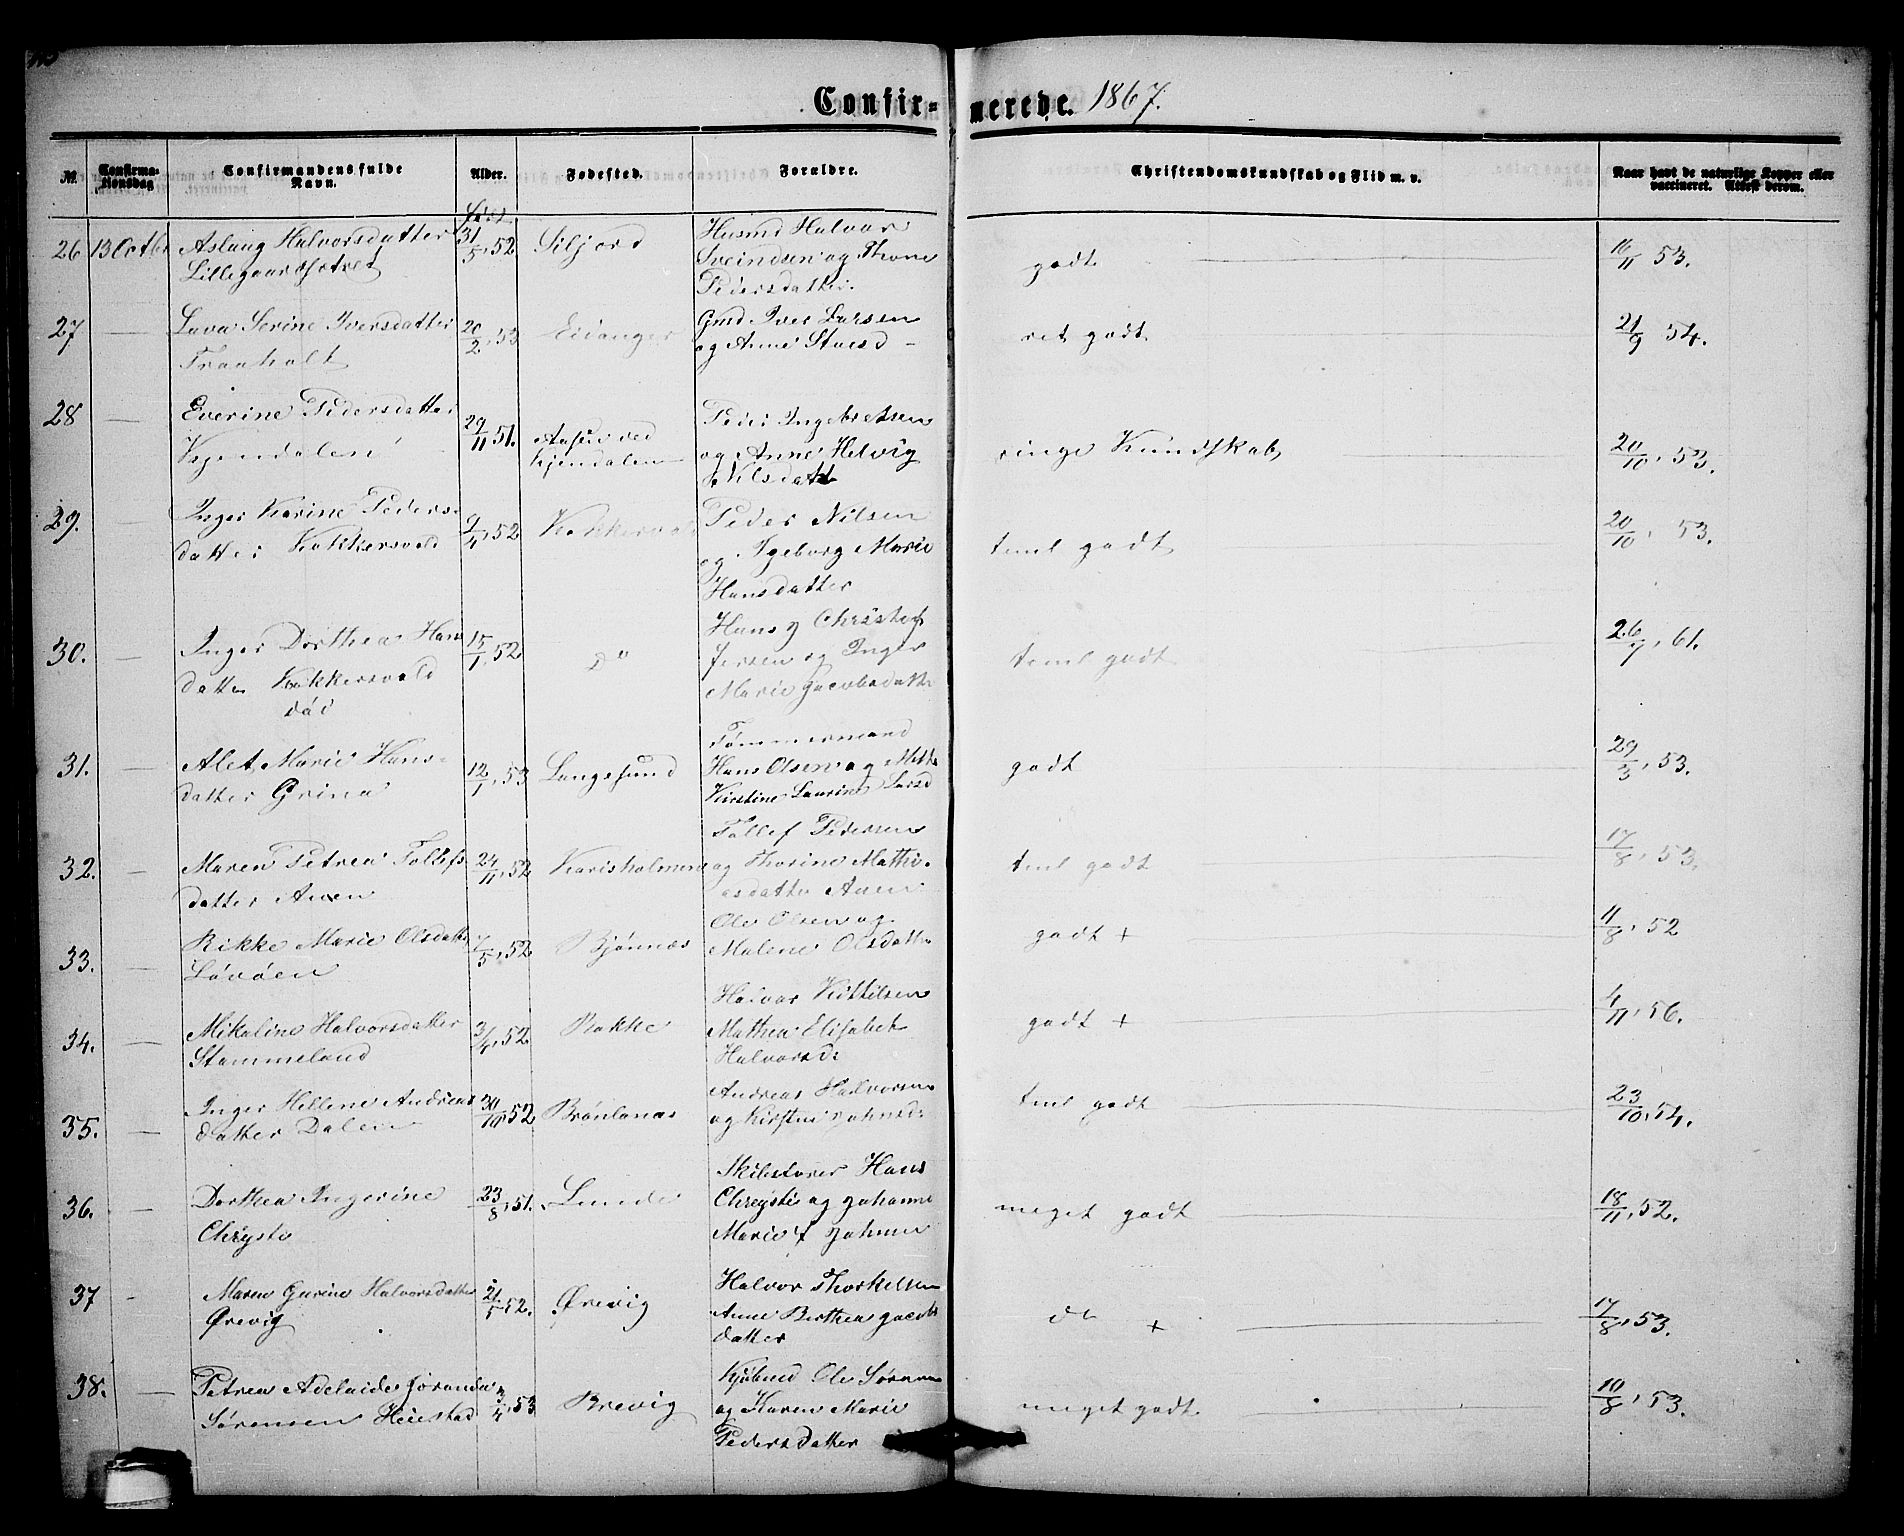 Confir- merede. 1867.
№ Confirma-tionsdag Confirmandens fulde Navn. Alder. Fødested. Forældre. Christendomskundskab og Flid m. v. Naar havt de naturlige Kopper eller vaccineret. Attest derom.
26 13 Octbr Aslaug Halvorsdatter 31/5, 52 Siljord Husmd Halvor godt 16/11 53.
Sveindsen og Thone
Pedersdatter.
27 — Serine Iversdatter 20/2, 53 Eidanger Gmd Iver Larsen ret godt 21/9 54.
og Anne
28 — Everine Pedersdatter 29/11 51. Peder Ingebretsen ringe Kundskab 20/10, 53.
Kjendalen Kjendalen og Anne Helvig
Nilsdatt
29. — Inger Karine Peders- 9/4, 52 Kokkersvold Peder Nilsen teml godt 20/10, 53.
datter Kokkersvold og Igeborg Marie
Hansdatter
30. — Inger Dorthea Hans 15/1, 52 do Hans J Christof teml godt 26/7, 61.
datter Kokkersvold fersen og Inger
Marie Jacobsdatte
31. — Alet Marie Hans- 12/1, 53 Langesund Tømmermand godt 29/3, 53.
datter Grina Hans Olsen og Mette
Kirstine Laurine Larsd
32. — Maren Petrea Tollefs 24/11, 52 Karisholmen Tollef Pedersen teml godt 17/8, 53.
datter Auen og Thorine Mathi-
asdatte Auen
33. — Rikke Marie Olsdatte 7/5, 52 Bjønnæs Ole Olsen og godt + 11/8, 52
Løvøen Malene Olsdatte
34. — Mikaline Halvorsdatter 3/4, 52 Bakke Halvor Kittilsen godt + 4/11, 56.
Stammeland Mathea Elisabet
Halvorsd:
35. — Inger Hellene Andreas 30/10, 52 Brønlanæs Andreas Halvorsen teml godt 23/10, 54.
datter Dalen og Kirsten Johnsd:
36. — Dorthea Ingerine 23/8, 51. Lunde Hans meget godt 18/11, 52.
Chrystie Chrystie og Johanne
Marie f
37 — Maren Gurine Halvorsdatter 21/5, 52. Ørevig Halvor Thorkelsen do + 17/8, 53.
Ørevig Anne Berthea Jacobs
datter
38. — Petrea Adelaide 3/4, 53 Brevig Ole Sørensen meget godt 10/8, 53.
Sørensen Heiestad og Karen Marie
Pedersdatter